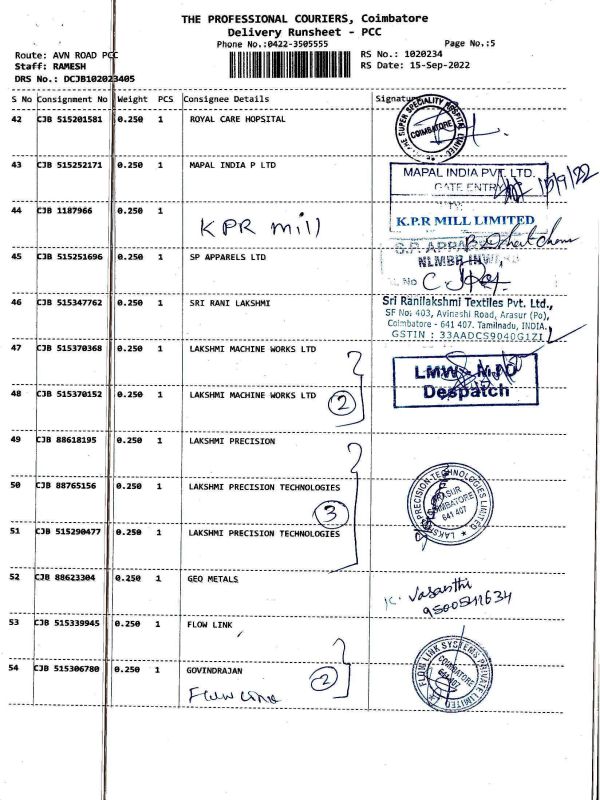 THE PROFESSIONAL COURIERS, Coimbatore
Delivery Runsheet - PCC
Phone No.:0422-3505555 Page No.:5
Route: AVN ROAD PCC RS No.: 1020234
Staff: RAMESH RS Date: 15-Sep-2022
DRS No.: DCJB102023405
S No Consignment No Weight PCS Consignee Details Signature
42 CJB 515201581 0.250 1 ROYAL CARE HOPSITAL
THE SUPER SPECIALITY HOSPITAL LIMITED
COIMBATORE
43 CJB 515252171 0.250 1 MAPAL INDIA P LTD
MAPAL INDIA PVT. LTD.
GATE ENTRY
15/9/22
44 CJB 1187966 0.250 1
KPR mill
K.P.R MILL LIMITED
45 CJB 515251696 0.250 1 SP APPARELS LTD
S.P. APPAR
NLMBR INW
No
46 CJB 515347762 0.250 1 SRI RANI LAKSHMI
Sri Ranilakshmi Textiles Pvt. Ltd.,
SF No: 403, Avinashi Road, Arasur (Po),
Coimbatore - 641 407. Tamilnadu, INDIA.
GSTIN : 33AADCS9040G1Z1
47 CJB 515370368 0.250 1 LAKSHMI MACHINE WORKS LTD
LMW - MPD
Despatch
48 CJB 515370152 0.250 1 LAKSHMI MACHINE WORKS LTD
2
49 CJB 88618195 0.250 1 LAKSHMI PRECISION
50 CJB 88765156 0.250 1 LAKSHMI PRECISION TECHNOLOGIES
3
LAKSHMI PRECISION TECHNOLOGIES LIMITED
ARASUR
COIMBATORE
641 407
51 CJB 515290477 0.250 1 LAKSHMI PRECISION TECHNOLOGIES
52 CJB 88623304 0.250 1 GEO METALS
K. Vasanthi
53 CJB 515339945 0.250 1 FLOW LINK
54 CJB 515306780 0.250 1 GOVINDRAJAN
2
FLOW LINK SYSTEMS PRIVATE LIMITED
COIMBATORE
641 407